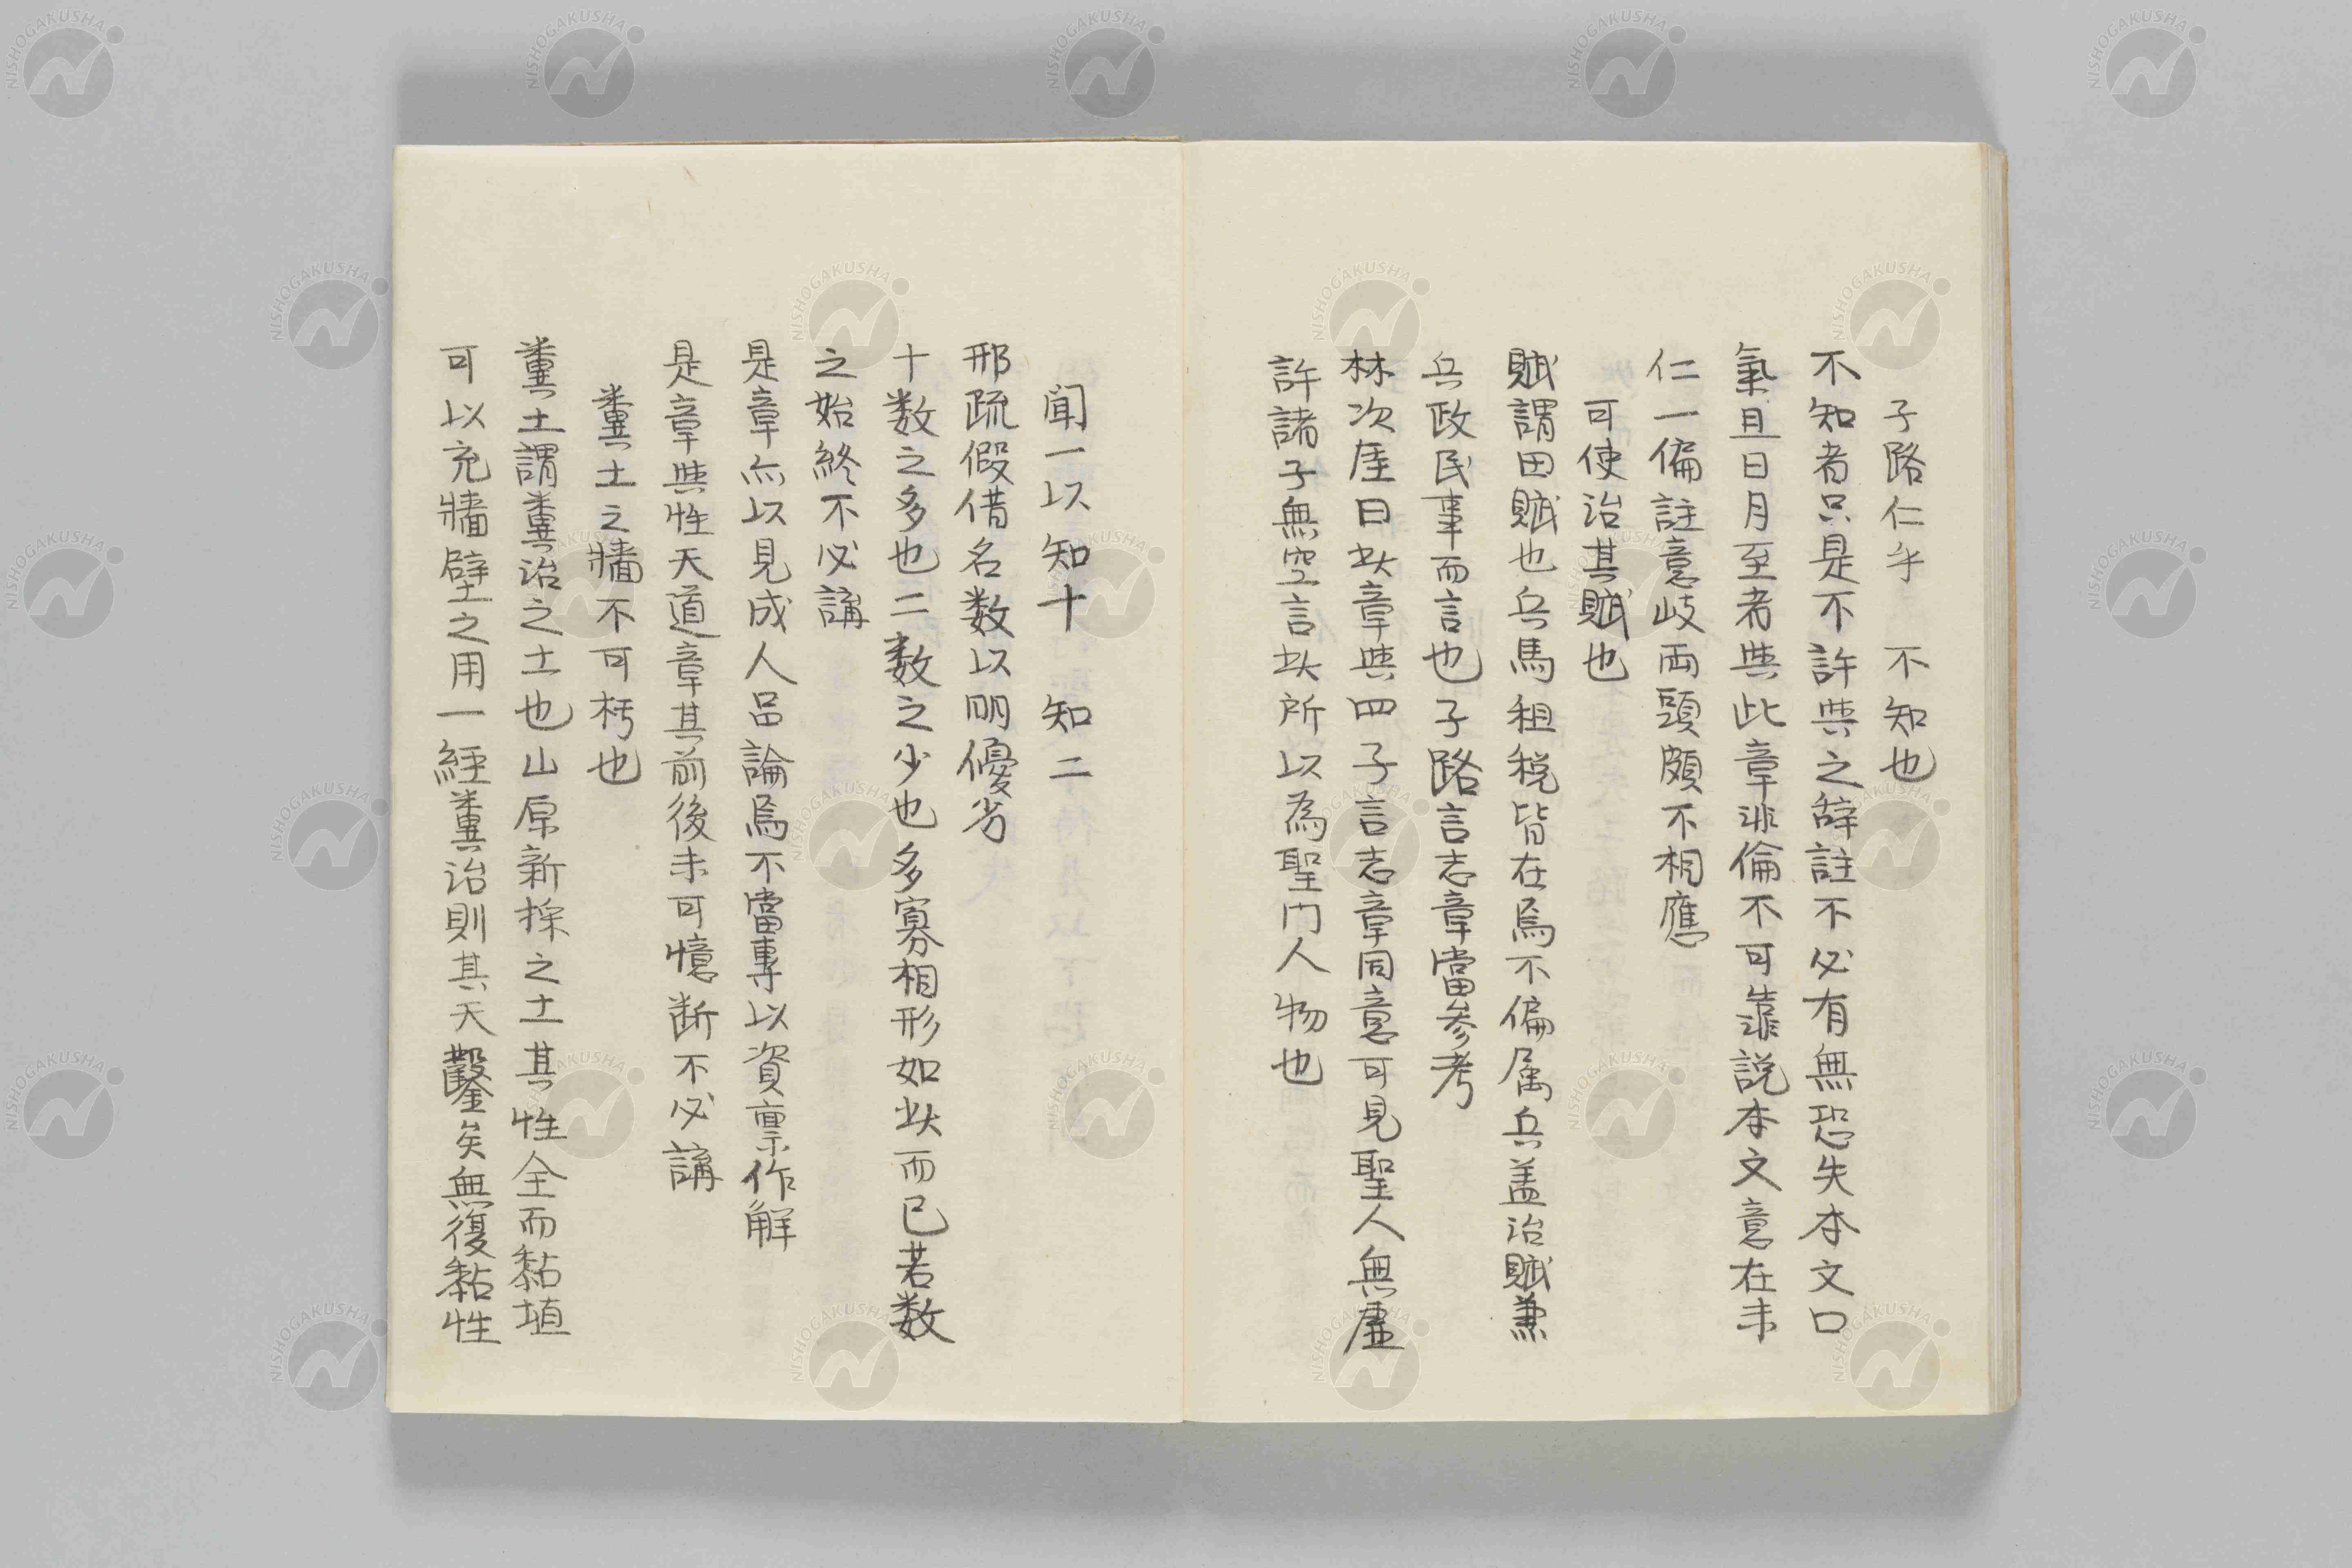 子路仁乎　不知也
不知者只是不許與之辭註不必有無恐失本文口
氣且日月至者與此章非倫不可靠説本文意在未
仁一偏註意岐兩頭頗不相應
可使治其賦也
賦謂田賦也兵馬租税皆在焉不偏属兵盖治賦兼
兵政民事而言也子路言志章當参考
林次崖曰此章與四子言志章同意可見聖人無虚
許諸子無空言此所以為聖門人物也
聞一以知十　知二
邢疏假借名数以明優劣
十数之多也二数之少也多寡相形如此而已若数
之始終不必講
是章亦以見成人品論焉不當專以資禀作解
是章與性天道章其前後未可憶断不必講
糞土之牆不可杇也
糞土謂糞治之土也山原新採之土其性全而黏埴
可以充牆壁之用一經糞治則其天鑿矣無復黏性
NISHOGAKUSHA